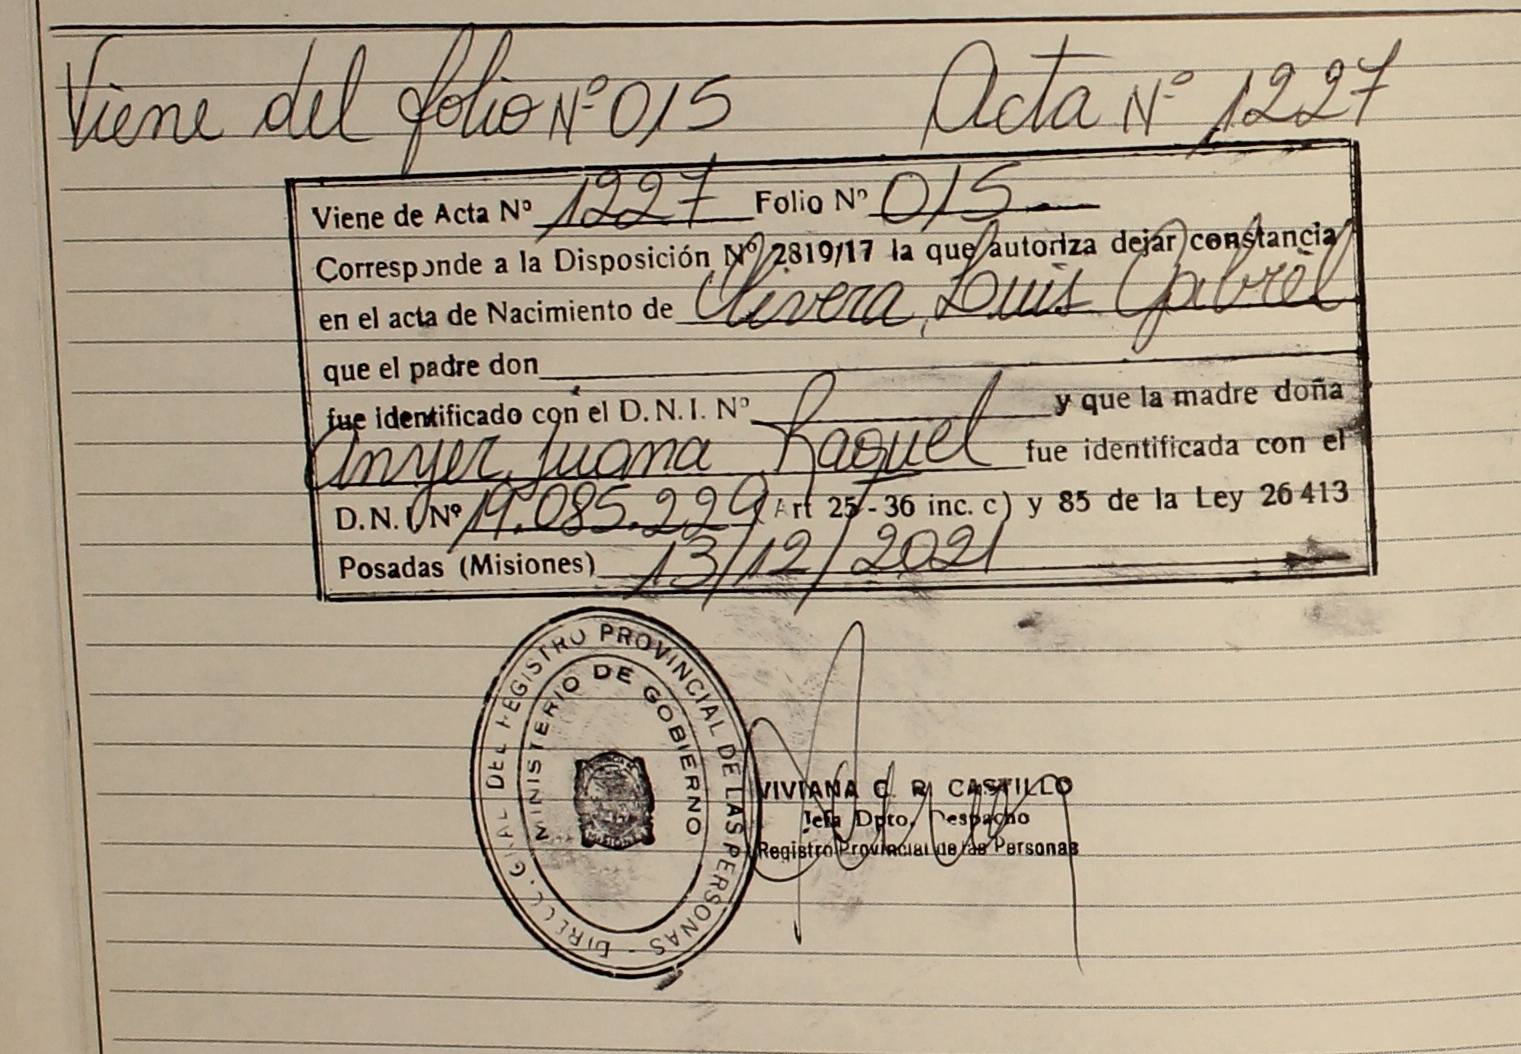 Viene del folio Nº 015 Acta Nº 1227
Viene de Acta Nº 1227 Folio Nº 015
Corresponde a la Disposición Nº 2819/17 la que autoriza dejar constancia
en el acta de Nacimiento de Olivera, Luis Gabriel
que el padre don
fue identificado con el D.N.I. Nº y que la madre doña
Anyer, Juana Raquel fue identificada con el
D.N.I. Nº 19.085.229 (Art 25-36 inc. c) y 85 de la Ley 26413
Posadas (Misiones) 13/12/2021
DIRECC. GRAL DEL REGISTRO PROVINCIAL DE LAS PERSONAS -
MINISTERIO DE GOBIERNO
VIVIANA C. R. CASTILLO
Jefa Dpto. Despacho
Registro Provincial de las Personas